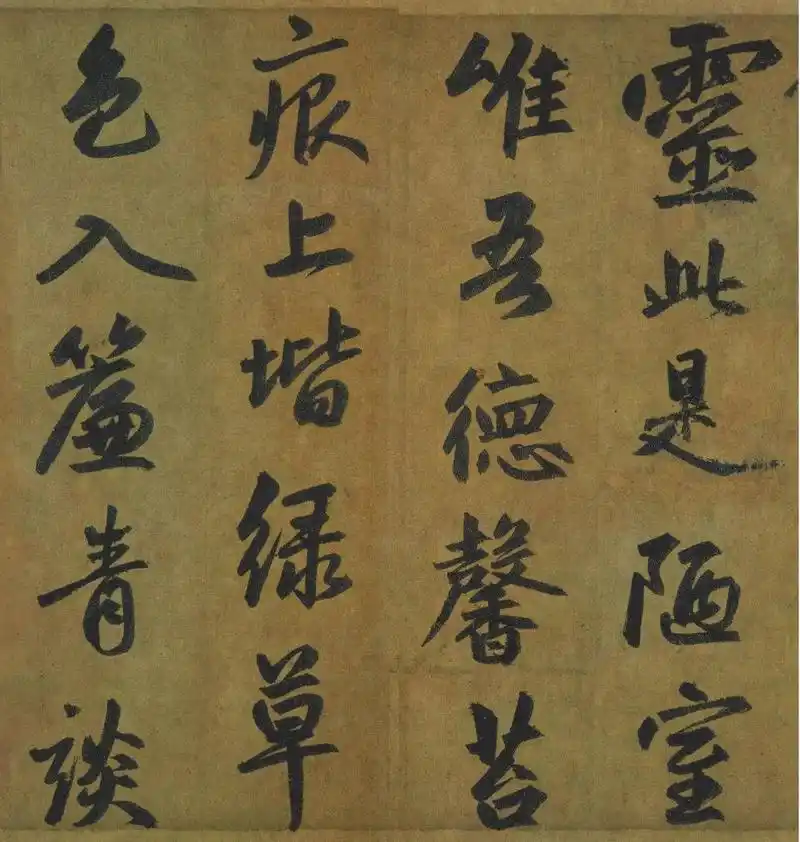 靈此是陋室
唯吾德馨苔
痕上堦綠草
色入簾青談